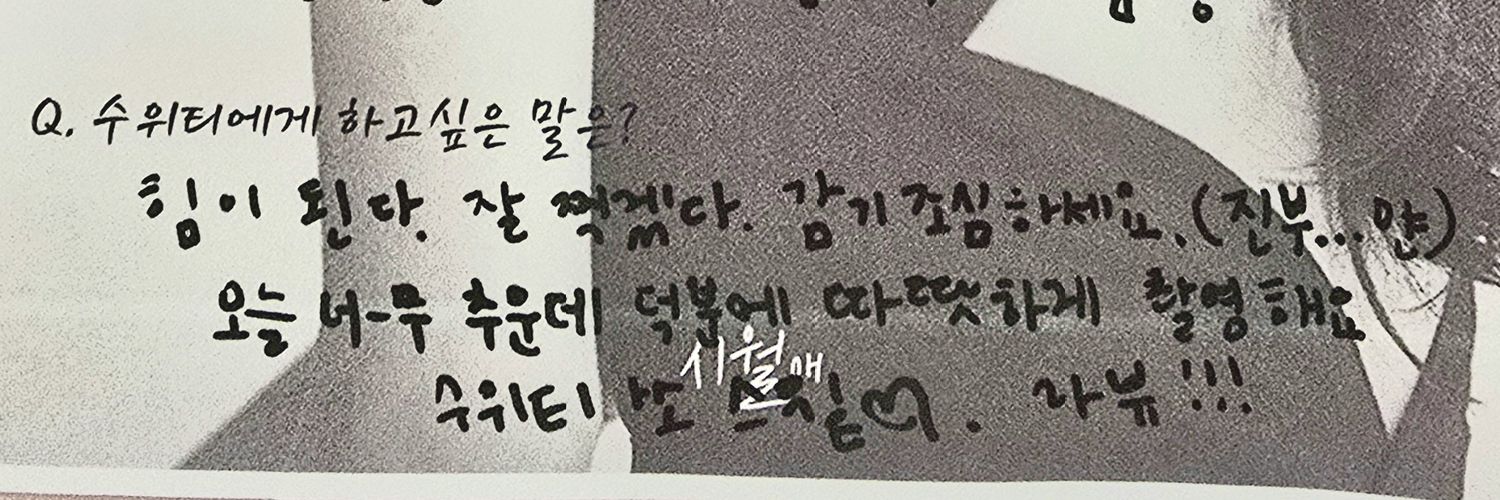 Q. 수위티에게 하고싶은 말은?
힘이 된다. 잘 먹겠다. 감기조심하세요. (진부... 얀)
오늘 너-무 추운데 덕분에 따땃하게 촬영해요
시월애
수위티 또
라뷰!!!